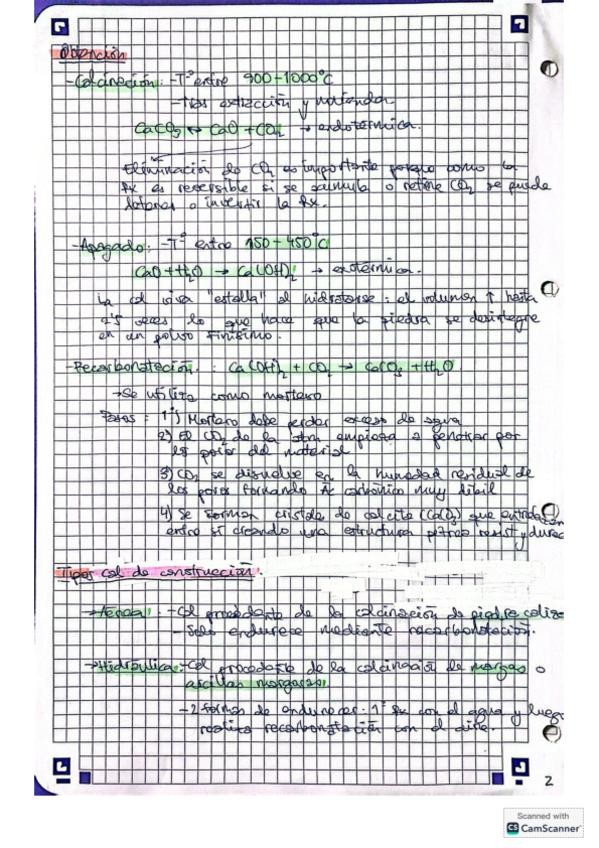 Obtención
- Calcinación: - Tº entre 900-1000ºC
- Tras extracción y molienda
CaCO3 ↔ CaO + CO2 → endotérmica.
Eliminación de CO2 es importante porque como la
Rx es reversible si se acumula o retiene CO2 se puede
detener o invertir la Rx.
- Apagado: - Tº entre 150-450ºC
CaO + H2O → Ca(OH)2 → exotérmica.
La cal viva "estalla" al hidratarse: el volumen ↑ hasta
2'5 veces lo que hace que la piedra se desintegre
en un polvo finísimo.
- Recarbonatación: Ca(OH)2 + CO2 → CaCO3 + H2O.
→ Se utiliza como mortero
Pasos: 1º) Mortero debe perder exceso de agua
2) El CO2 de la atm empieza a penetrar por
los poros del material
3) CO2 se disuelve en la humedad residual de
los poros formando Ác carbónico muy débil
4) Se forman cristales de calcita (CaCO3) que
entre sí creando una estructura pétrea resist y
Tipos cal de construcción:
→ Aérea: - Cal procedente de la calcinación de piedra caliza
- Solo endurece mediante recarbonatación.
→ Hidráulica: - Cal procedente de la calcinación de margas o
arcillas margosas
- 2 formas de endurecer: 1º Rx con el agua y luego
realiza recarbonatación con el aire.
2
Scanned with
CS CamScanner